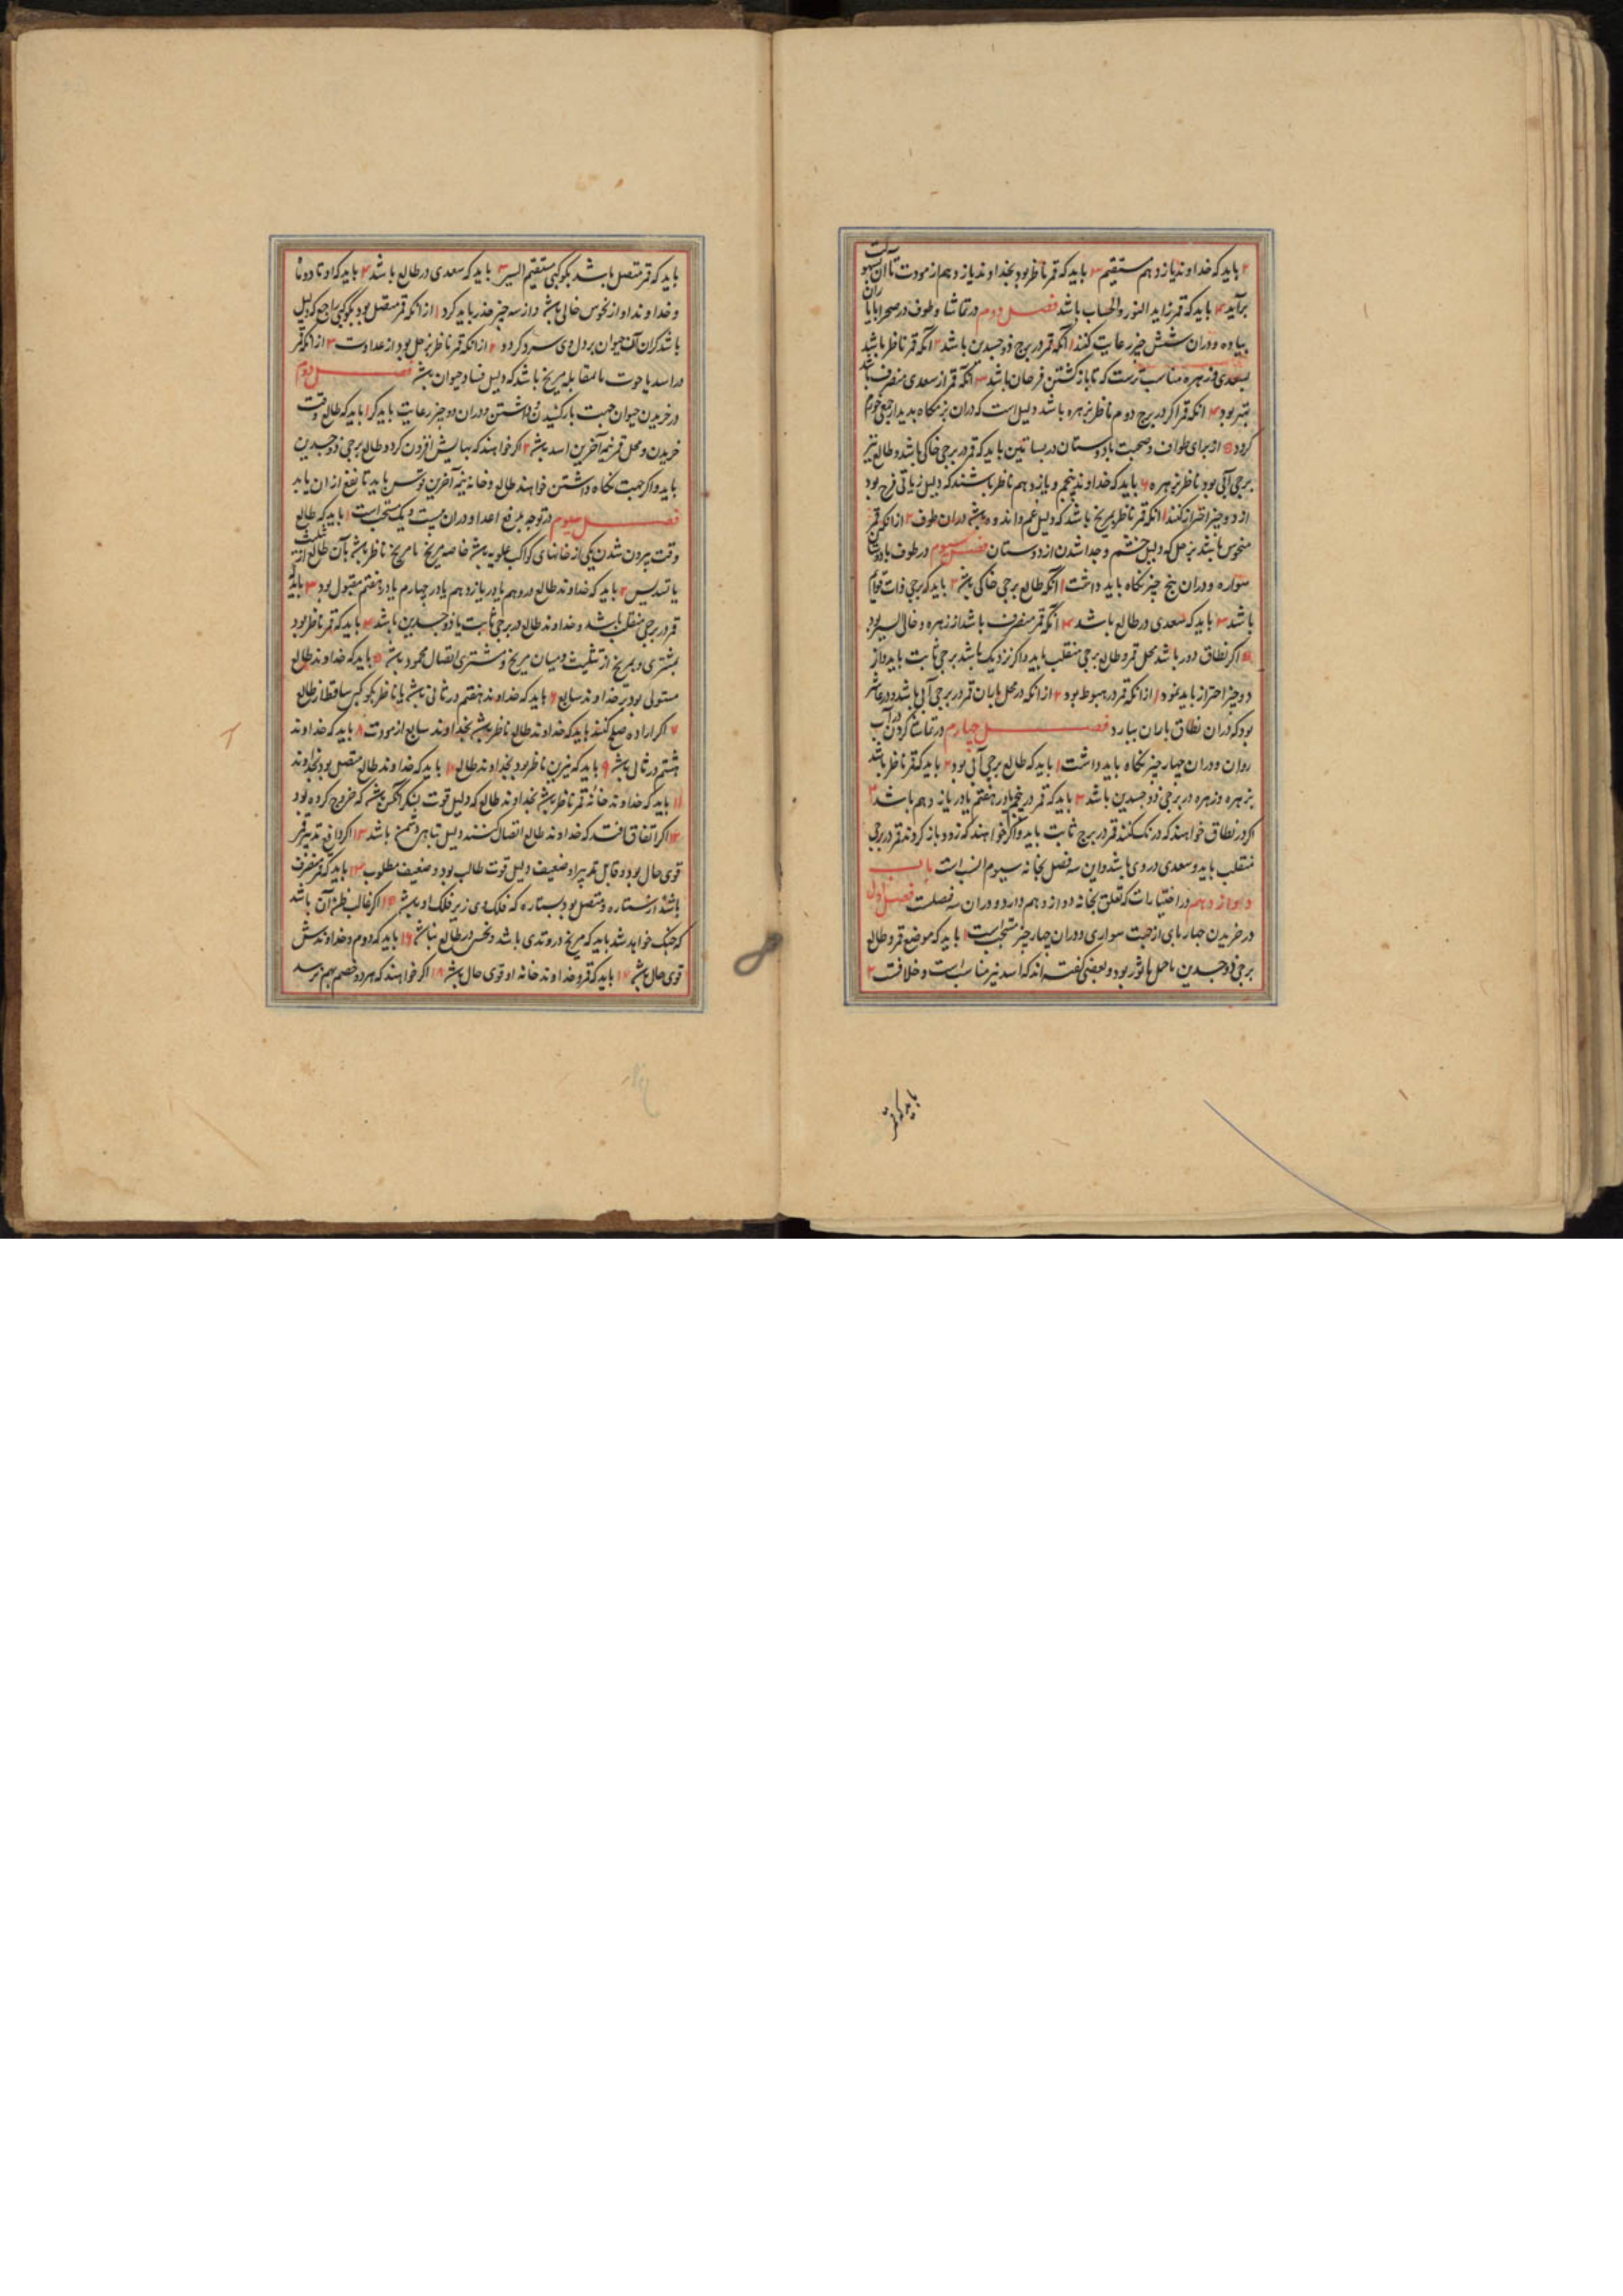 ۲ باید که خداوند یازدهم مستقیم ۳ باید که قمر ناظر بود بخداوند یازدهم از مودت تا آن بسهولت
برآید ۴ باید که قمر زاید النور و الحساب باشد فصل دوم در تماشا و طوف در صحرا یاران
پیاده و در ان شش چیز رعایت کنند ۱ آنکه قمر در برج ذوجسدین باشد ۲ آنکه قمر ناظر باشد
بسعدی و زهره مناسب ترست که تا بازگشتن فرحان باشد ۳ آنکه قمر از سعدی منصرف باشد
بهتر بود ۴ آنکه قمر اگر در برج دوم ناظر بزهره باشد دلیل است که در ان نزهتگاه بدیدار جمعی خرم
گردد ۵ از برای طواف و صحبت با دوستان در بساتین باید که قمر در برجی خاکی باشد و طالع نیز
برجی آبی بود ناظر بزهره ۶ باید که خداوند پنجم و یازدهم ناظر باشند که دلیل زیادتی فرح بود
از دو چیز احتراز کنند ۱ آنکه قمر ناظر بمریخ باشد که دلیل غم و اندوه باشد در ان طوف ۲ از آنکه قمر
منحوس باشد بزحل که دلیل خشم و جدا شدن از دوستان فصل سیوم در طوف با دوستان
سواره و در ان پنج چیز نگاه باید داشت ۱ آنکه طالع برجی خاکی باشد ۲ باید که برجی ذات قوایم
باشد ۳ باید که سعدی در طالع باشد ۴ آنکه قمر منصرف باشد از زهره و خالی السیر بود
۵ اگر نطاق دور باشد محل قمر و طالع برجی منقلب باید و اگر نزدیک باشد برجی ثابت باید و از
دو چیز احتراز باید نمود ۱ از آنکه قمر در هبوط بود ۲ از آنکه در محل باران قمر در برجی آبی باشد و در عاشر
بود که در ان نطاق باران ببارد فصل چهارم در تماشا کردن در آب
روان و در ان چهار چیز نگاه باید داشت ۱ باید که طالع برجی آبی بود ۲ باید که قمر ناظر باشد
بزهره و زهره در برجی ذوجسدین باشد ۳ باید که قمر در پنجم یا در هفتم یا در یازدهم باشد ۴
اگر در نطاق خواهند که درنگ کنند قمر در برج ثابت باید و اگر خواهند که زود باز گردند قمر در برجی
منقلب باید و سعدی در وی باشد و این سه فصل بخانه سیوم انسب است باب
دوازدهم در اختیارات که تعلق بخانه دوازدهم دارد و در ان سه فصلست فصل اول
در خریدن چهارپای از جهت سواری و در ان چهار چیز مستحب است ۱ باید که موضع قمر و طالع
برجی ذوجسدین یا حمل یا ثور بود و بعضی گفته اند که اسد نیز مناسب است و خلافت ۲
باید که قمر
باید که قمر متصل باشد بکوکبی مستقیم السیر ۳ باید که سعدی در طالع باشد ۴ باید که اوتاد و
و خداوند او از نحوس خالی باشد و از سه چیز حذر باید کرد ۱ از آنکه قمر متصل بود بکوکبی راجع که دلیل
باشد که ان آن حیوان بر دل وی سرد گردد ۲ از آنکه قمر ناظر بزحل بود از عداوت ۳ از آنکه قمر
در اسد یا حوت یا لمقابله مریخ باشد که دلیل فساد حیوان باشد فصل دوم
در خریدن حیوان جهت بار کشیدن و داشتن و در ان دو چیز رعایت باید کرد ۱ باید که طالع وقت
خریدن و محل قمر نیمه آخرین اسد باشد ۲ اگر خواهند که بهایش افزون گردد طالع برجی ذوجسدین
باید و اگر جهت نگاه داشتن خواهند طالع و خانه نیمه آخرین قوس باید تا نفع از ان یابد
فصل سیوم در توجه بدفع اعدا و در ان بیست و یک مستحب است ۱ باید که طالع
وقت بیرون شدن یکی از خانهای کواکب علویه باشد خاصه مریخ یا مریخ ناظر باشد بآن طالع از تثلیث
یا تسدیس ۲ باید که خداوند طالع در دهم یا در یازدهم یا در چهارم یا در هفتم مقبول بود ۳ باید که
قمر در برجی منقلب باشد و خداوند طالع در برجی ثابت یا ذوجسدین باشد ۴ باید که قمر ناظر بود
بمشتری و بمریخ از تثلیث و میان مریخ و مشتری اتصال محمود باشد ۵ باید که خداوند طالع
مستولی بود بر خداوند سابع ۶ باید که خداوند هفتم در ثانی باشد یا ناظر بکوکبی ساقط از طالع
۷ اگر اراده صلح کنند باید که خداوند طالع ناظر باشد بخداوند سابع از مودت ۸ باید که خداوند
هشتم در ثانی باشد ۹ باید که نیرین ناظر بود بخداوند طالع ۱۰ باید که خداوند طالع متصل بود بخداوند
۱۱ باید که خداوند خانه قمر ناظر باشد بخداوند طالع که دلیل قوت لشکر آنکس باشد که خروج کرده بود
۱۲ اگر اتفاق افتد که خداوند طالع اتصال کنند دلیل تباهی دشمن باشد ۱۳ اگر دافع تدبیر قمر
قوی حال بود و قابل تدبیر او ضعیف دلیل قوت طالب بود و ضعیف مطلوب ۱۴ باید که قمر منصرف
باشد از ستاره و متصل بود بستاره که فلک وی زیر فلک او باشد ۱۵ اگر غالب ظن آن باشد
که جنگ خواهد شد باید که مریخ در وتدی باشد و نحس در طالع نباشد ۱۶ باید که دوم و خداوندش
قوی حال باشد ۱۷ باید که قمر و خداوند خانه او قوی حال باشد ۱۸ اگر خواهند که هر دو خصم بهم نرسد